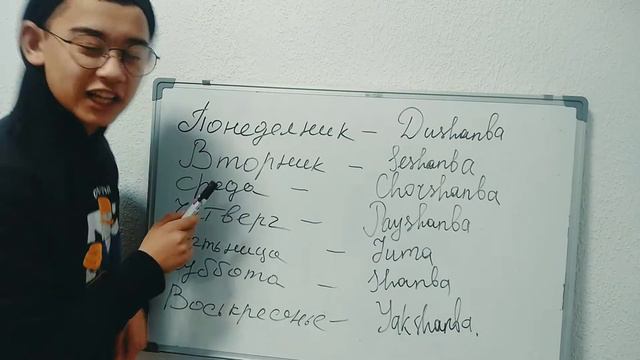 Понеделник – Dushanba
Вторник – Seshanba
Среда – Chorshanba
Четверг – Payshanba
Пятьница – Juma
Суббота – Shanba
Воськресенье – Yakshanba.